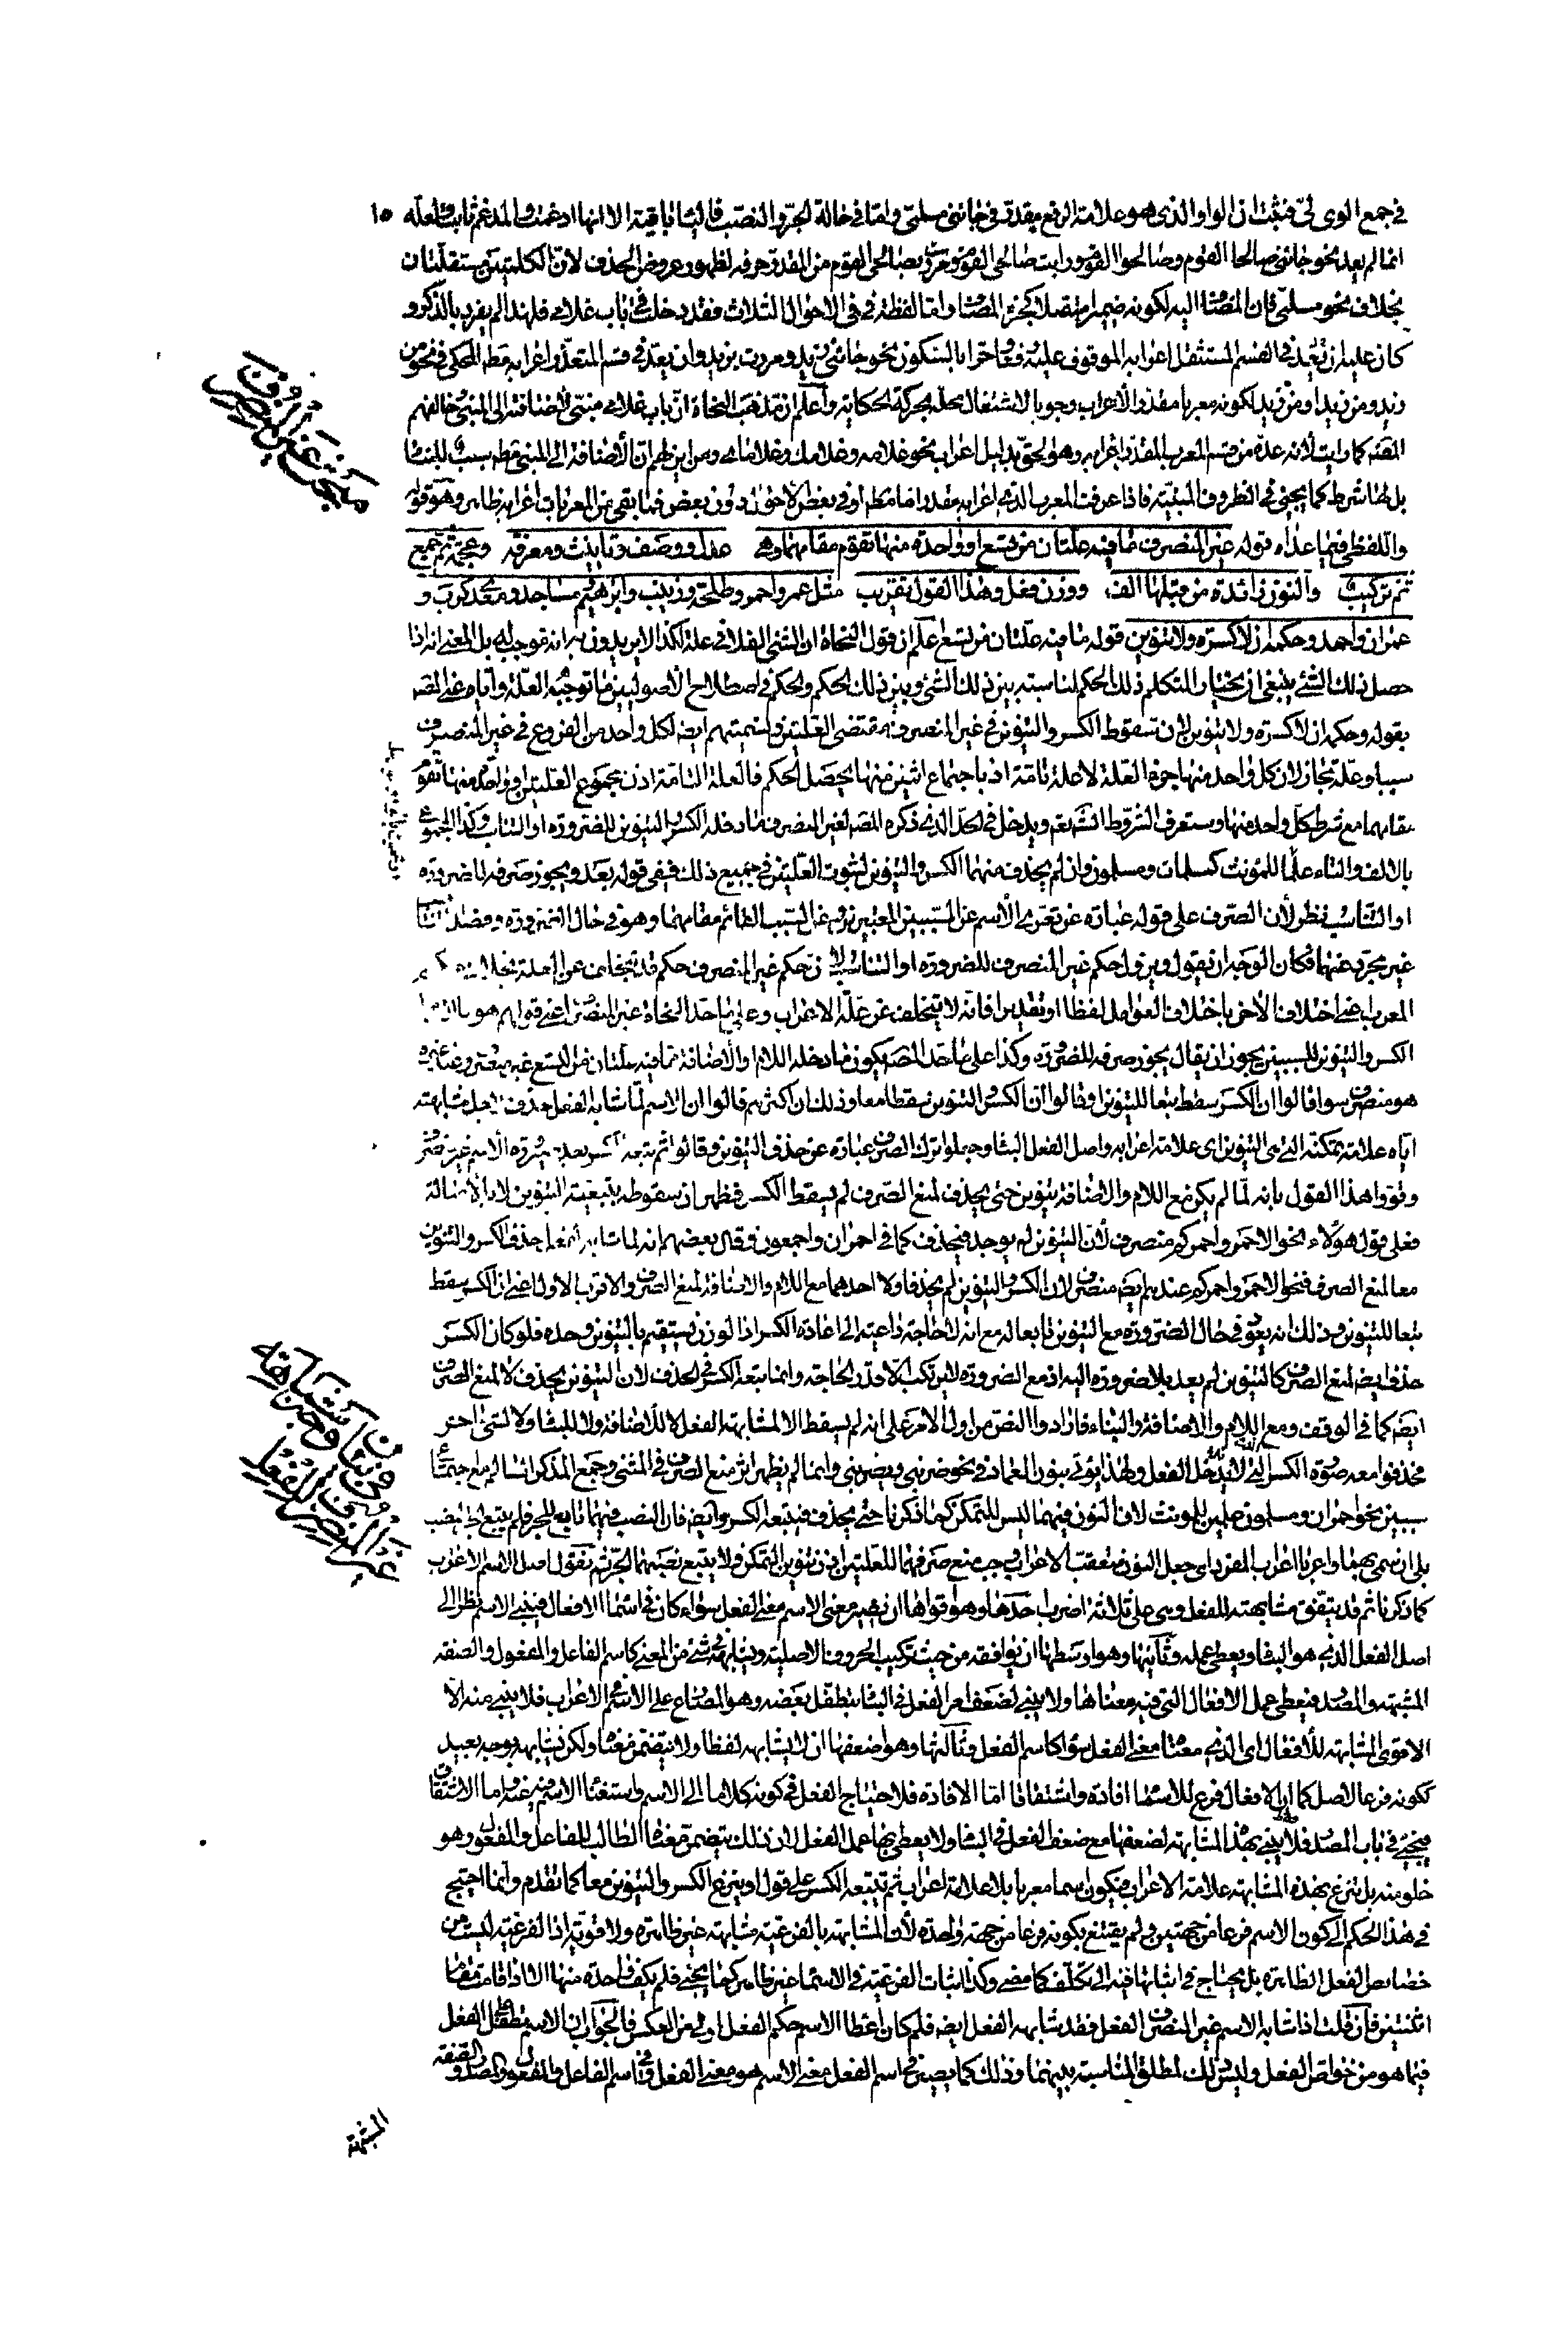 في جمع الوي ليّ فثبت ان الواو الذي هو علامة الرفع مقدر في جائني مسلميّ واما في حالة الجر والنصب فالياء باقية الا انها ادغمت والمدغم ثابت ولعله ١٥
انما لم يعد نحو جائني صالحا القوم وصالحوا القوم ورايت صالحي القوم ومررت بصالحي القوم من المقدر حرفه لظهور عروض الحذف لان الكلمتين مستقلتان
بخلاف نحو مسلميّ فان المضاف اليه لكونه ضميرا متصلا كجزء المضاف واما لفظة في في الاحوال الثلاث فقد دخلت في باب غلامي فلهذا لم يفرد بالذكر و
كان عليه ان يعد في القسم المستثقل اعرابه الموقوف عليه رفعا وجرا بالسكون نحو جائني زيد ومررت بزيد وان يعد في قسم المتعذر اعرابه مط المحكي في نحو من
زيد ومن زيدا ومن زيد لكونه معربا مقدر الاعراب وجوبا لاشتغال محله بحركة الحكاية واعلم ان مذهب النحاة ان باب غلامي مبني لاضافته الى المبني وخالفهم
المصنف كما رايت لانه عده من قسم المعرب المقدر اعرابه وهو الحق بدليل اعراب نحو غلامه وغلامك وغلاماي ومن اين لهم ان الاضافة الى المبني مط سبب للبناء
بل لها شرط كما يجيئ في الظروف المبنية فاذا عرفت المعرب الذي اعرابه مقدر اما مط او في بعض الاحوال دون بعض فما بقي من المعربات اعرابه ظاهر وهو قوله
واللفظي فيما عداه قوله غير المنصرف ما فيه علتان من تسع او واحدة منها تقوم مقامهما وهي عدل ووصف وتانيث ومعرفة وعجمة ثم جمع
ثم تركيب والنون زائدة من قبلها الف ووزن فعل وهذا القول تقريب مثل عمر واحمر وطلحة وزينب وابرهيم ومساجد ومعد كرب و
عمران واحمد وحكمه ان لا كسرة ولا تنوين قوله ما فيه علتان من تسع اعلم ان قول النحاة ان الشيء الفلاني علة لكذا لا يريدون به انه موجب له بل المعنى انه اذا
حصل ذلك الشيء ينبغي ان يختار المتكلم ذلك الحكم لمناسبة بين ذلك الشيء وبين ذلك الحكم والحكم في اصطلاح الاصوليين ما توجبه العلة واياه عنى المصنف
بقوله وحكمه ان لا كسرة ولا تنوين لان سقوط الكسر والتنوين في غير المنصرف مقتضى العلتين وتسميتهم ايضا لكل واحد من الفروع في غير المنصرف
سببا وعلة مجاز لان كل واحد منها جزء العلة لا علة تامة اذ باجتماع اثنين منها يحصل الحكم فالعلة التامة اذن مجموع العلتين او واحدة منها تقوم
مقامهما مع شرط كل واحد منها وستعرف الشروط انشاء تع ويدخل في الحد الذي ذكره المصنف لغير المنصرف ما دخله الكسر والتنوين للضرورة او التناسب وكذا المجموع
بالالف والتاء علما للمؤنث كمسلمات ومسلمون وان لم يحذف منهما الكسر والتنوين لثبوت العلتين في جميع ذلك ففي قوله بعد ويجوز صرفه للضرورة
او التناسب نظر لان الصرف على قوله عبارة عن تعري الاسم عن السببين المعتبرين وعن السبب القائم مقامهما وهو في حال الضرورة وقصد التناسب
غير مجرد عنهما فكان الوجه ان يقول ويزول حكم غير المنصرف للضرورة او التناسب لان حكم غير المنصرف حكم قد يتخلف عن العلة بخلاف حكم
المعرب اعني اختلاف الاخر باختلاف العوامل لفظا او تقديرا فانه لا يتخلف عن علة الاعراب وعلى ما حد النحاة غير المنصرف اعني قولهم هو ما
الكسر والتنوين للسببين يجوز ان يقال يجوز صرفه للضرورة وكذا على ما حد المصنف يكون ما دخله اللام والاضافة مما فيه علتان من التسع غير منصرف وعند غيره
هو منصرف سواء قالوا ان الكسر سقط تبعا للتنوين او قالوا ان الكسر والتنوين سقطا معا وذلك ان اكثرهم قالوا ان الاسم لما شابه الفعل حذف لاجل مشابهته
اياه علامة تمكنه التي هي التنوين اي علامة اعرابه واصل الفعل البناء وجعلوا ترك الصرف عبارة عن حذف التنوين وقالوا ثم يتبعه الكسر بعد صيرورة الاسم غير منصرف
وقووا هذا القول بانه لما لم يكن مع اللام والاضافة تنوين حتى يحذف لمنع الصرف لم يسقط الكسر فظهر ان سقوطه بتبعية التنوين لا بالاصالة
فعلى قول هؤلاء نحو الاحمر واحمركم منصرف لان التنوين لم يوجد فيحذف كما في احمران واجمعون وقال بعضهم انه لما شابه الفعل حذف الكسر والتنوين
معا لمنع الصرف فنحو الاحمر واحمركم عندهم ايضا منصرف لان الكسر والتنوين لم يحذفا ولا احدهما مع اللام والاضافة لمنع الصرف والاقرب الاول اعني ان الكسر سقط
تبعا للتنوين وذلك انه يعود في حال الضرورة مع التنوين تابعا له مع انه لا حاجة داعية الى اعادة الكسر اذ الوزن يستقيم بالتنوين وحده فلو كان الكسر
حذف ايضا لمنع الصرف كالتنوين لم يعد بلا ضرورة اليه اذ مع الضرورة لا يرتكب الا قدر الحاجة وانما تبعه الكسر في الحذف لان التنوين يحذف لا لمنع الصرف
ايضا كما في الوقف ومع اللام والاضافة والبناء فارادوا النص من اول الامر على انه لم يسقط الا لمشابهة الفعل لا للاضافة ولا للبناء ولا لشيء اخر
فحذفوا معه صورة الكسر التي لا تدخل الفعل ولهذا يؤتى بنون العماد في نحو ضربني ويضربني وانما لم يظهر اثر منع الصرف في المثنى وجمع المذكر السالم مع اجتماع
سببين نحو احمران ومسلمون علمين للمؤنث لان النون فيهما ليس للتمكن كما ذكرنا حتى يحذف فيتبعه الكسر وايضا فان النصب فيهما تابع للجر فلم يتبع الجر النصب
بلى ان سمي بهما واعربا اعراب المفرد اي جعل النون متعقب الاعراب وجب منع صرفهما للعلتين اذن تنوين التمكن ولا يتبع نصبهما الجر ثم نقول اصل الاسم الاعراب
كما ذكرنا ثم قد يتفق مشابهته للفعل وهي على ثلاثة اضرب احدها وهو اقواها ان يصير معنى الاسم معنى الفعل سواء كما في اسماء الافعال فيبنى الاسم نظرا الى
اصل الفعل الذي هو البناء ويعطى عمله وثانيها وهو اوسطها ان يوافقه من حيث تركيب الحروف الاصلية ويشابهه في شيء من المعنى كاسم الفاعل والمفعول والصفة
المشبهة والمصدر فيعطى عمل الافعال التي فيه معناها ولا يبنى لضعف امر الفعل في البناء بتطفل بعضه وهو المضارع على الاسم في الاعراب فلا يبنى منه الا
الاقوى المشابهة للافعال اي الذي معناه معنى الفعل سواء كاسم الفعل وثالثها وهو اضعفها ان لا يشابهه لفظا ولا يتضمن معناه ولكن يشابهه بوجه بعيد
ككونه فرعا لاصل كما ان الافعال فرع للاسماء افادة واشتقاقا اما الافادة فلاحتياج الفعل في كونه كلاما الى الاسم واستغناء الاسم فيه عنه واما الاشتقاق
فيجيئ في باب المصدر فلا يبنى بهذه المشابهة لضعفها مع ضعف الفعل في البناء ولا يعطى بها عمل الفعل لان ذلك بتضمن معناه الطالب للفاعل والمفعول وهو
خلو منه بل تنزع بهذه المشابهة علامة الاعراب فيكون اسما معربا بلا علامة اعراب ثم يتبعه الكسر على قول او ينزع الكسر والتنوين معا كما تقدم وانما احتيج
في هذا الحكم الى كون الاسم فرعا من جهتين ولم يقتنع بكونه فرعا من جهة واحدة لان المشابهة بالفرعية مشابهة غير ظاهرة ولا قوية اذ الفرعية ليست من
خصائص الفعل الظاهرة بل يحتاج في اثباتها فيه الى تكلف كما مضى وكذا اثبات الفرعية في الاسماء غير ظاهر كما يجيئ فلم يكف واحدة منها الا اذا قامت مقام
اثنتين فان قلت اذا شابه الاسم غير المنصرف الفعل فقد شابهه الفعل ايضا فلم كان اعطاء الاسم حكم الفعل اولى من العكس فالجواب ان الاسم تطفل على الفعل
فيما هو من خواص الفعل وليس ذلك لمطلق المناسبة بينهما وذلك كما يصير في اسم الفعل معنى الاسم هو معنى الفعل وفي اسم الفاعل والمفعول والمصدر والصفة
المشبهة
مبحث غير المنصرف